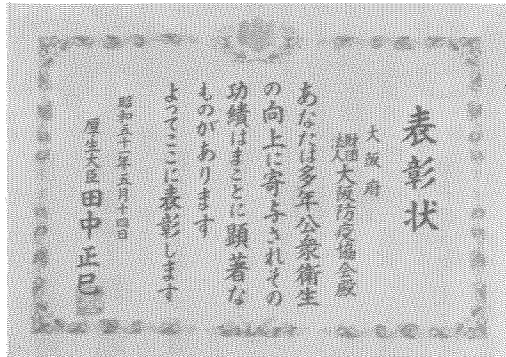 表彰状
大阪府
財団法人大阪防疫協会殿
あなたは多年公衆衛生
の向上に寄与されその
功績はまことに顕著な
ものがあります
よってここに表彰します
昭和五十一年五月十四日
厚生大臣 田中正巳